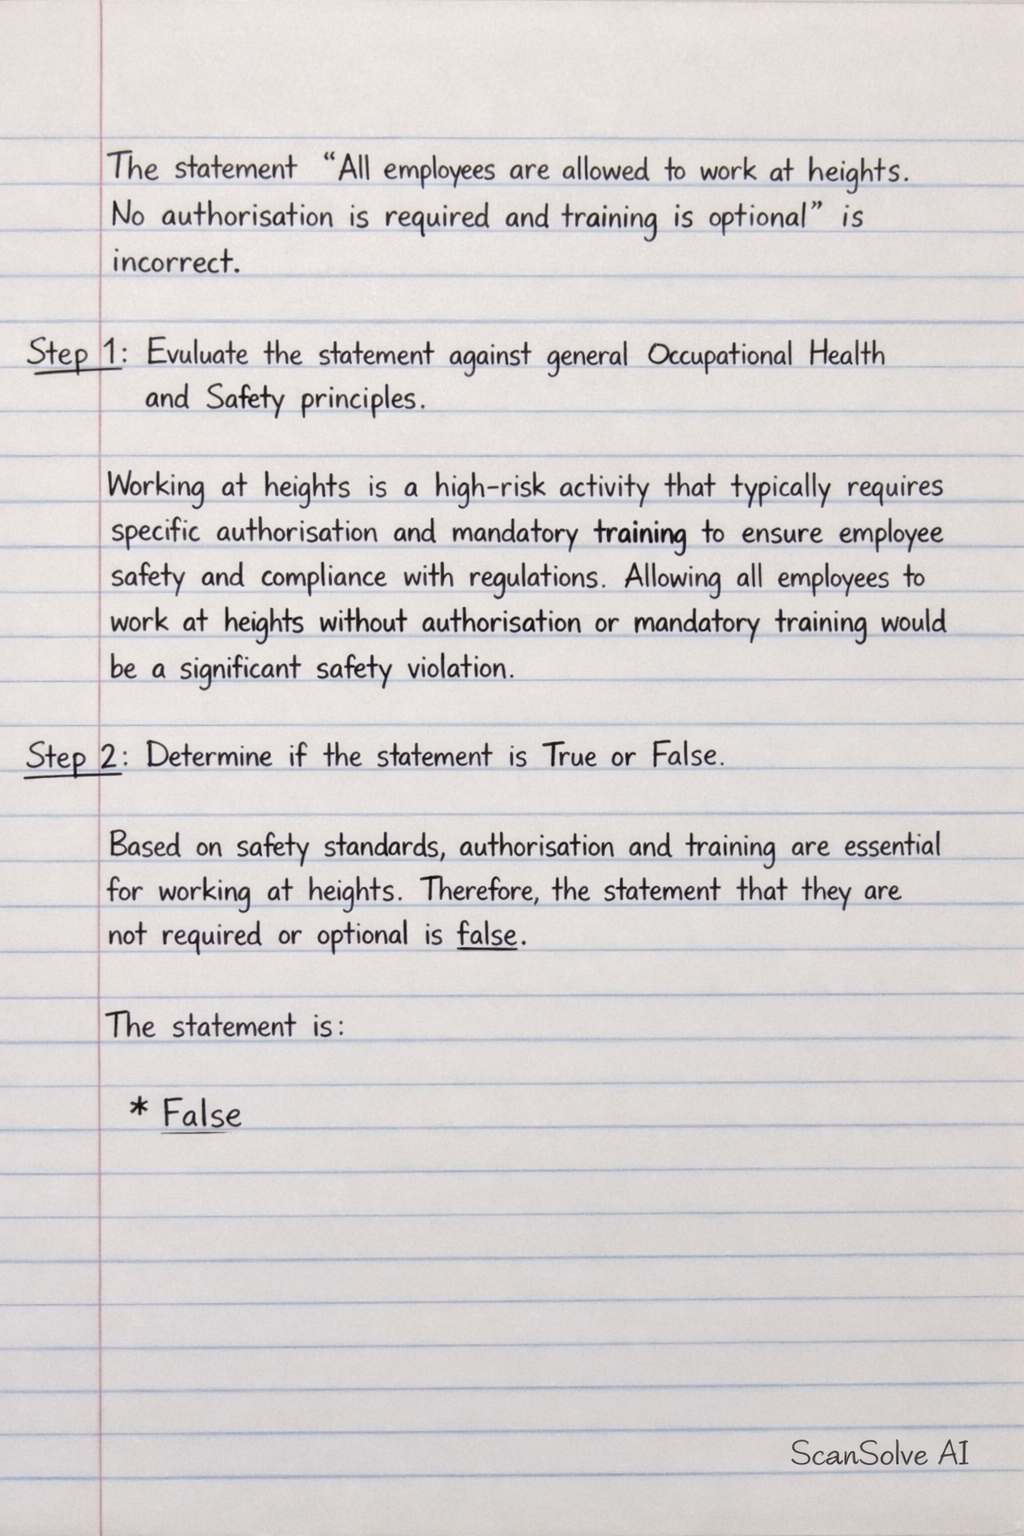 The statement “All employees are allowed to work at heights.
No authorisation is required and training is optional” is
incorrect.
Step 1: Evuluate the statement against general Occupational Health
and Safety principles.
Working at heights is a high-risk activity that typically requires
specific authorisation and mandatory training to ensure employee
safety and compliance with regulations. Allowing all employees to
work at heights without authorisation or mandatory training would
be a significant safety violation.
Step 2: Determine if the statement is True or False.
Based on safety standards, authorisation and training are essential
for working at heights. Therefore, the statement that they are
not required or optional is false.
The statement is:
* False
ScanSolve AI